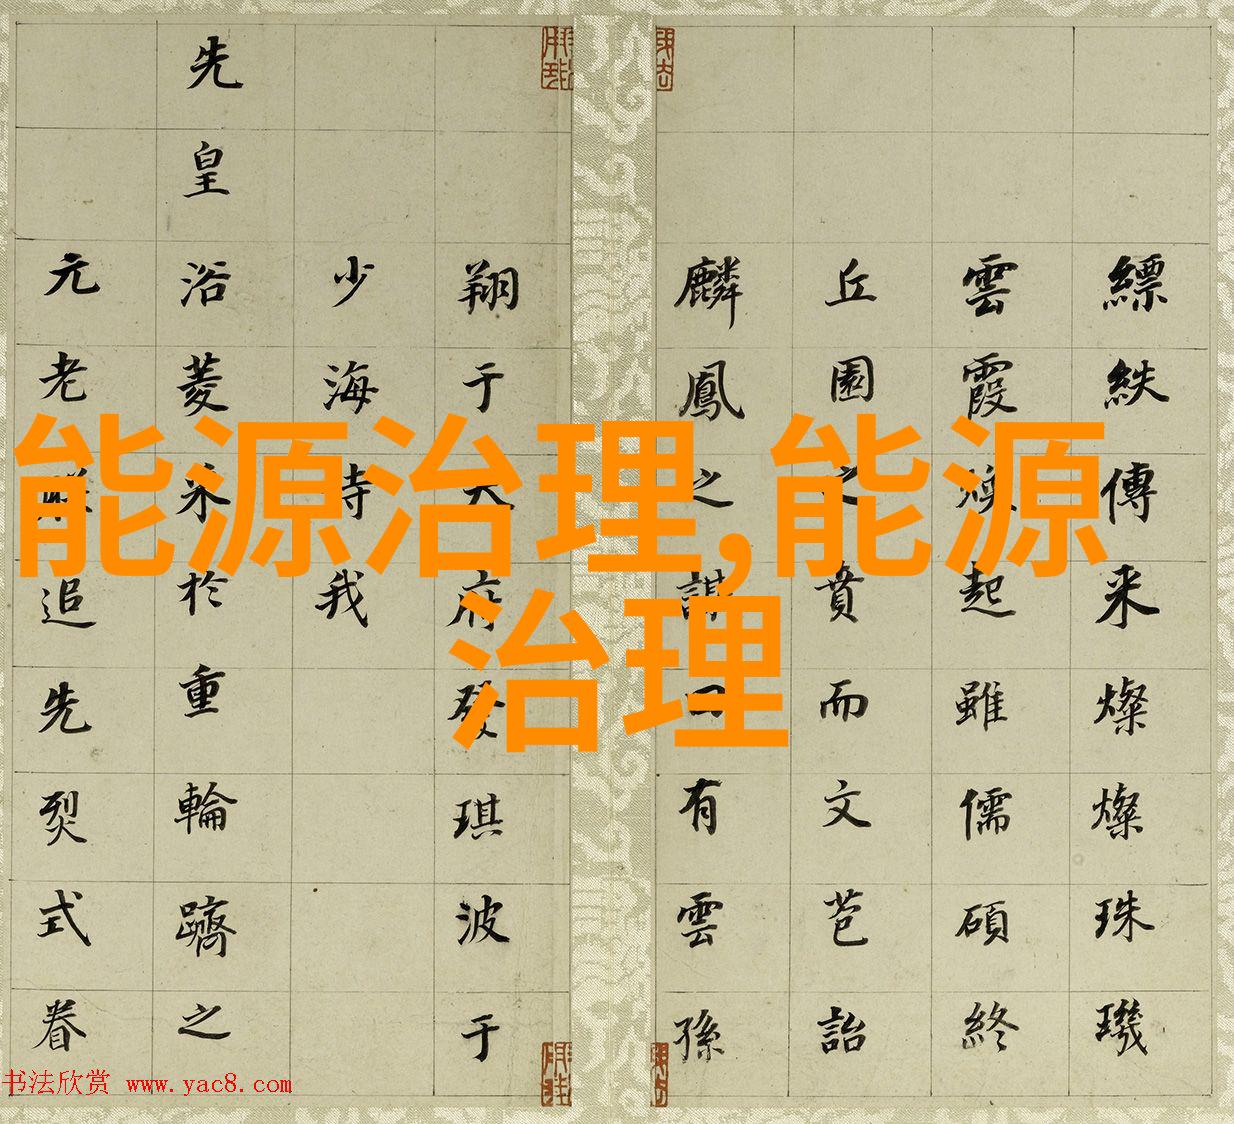 縹紩傳来燦燦珠璣
雲霞煥起雖儒碩終
丘園之賁而文苞詒
麟鳳之謀有雲孫
翔于天府發琪波于
少海我
先皇浴菱采於重輪躋之
元老追先烈式眷
能源治理,能源
治理
书法欣赏 www.yac8.com